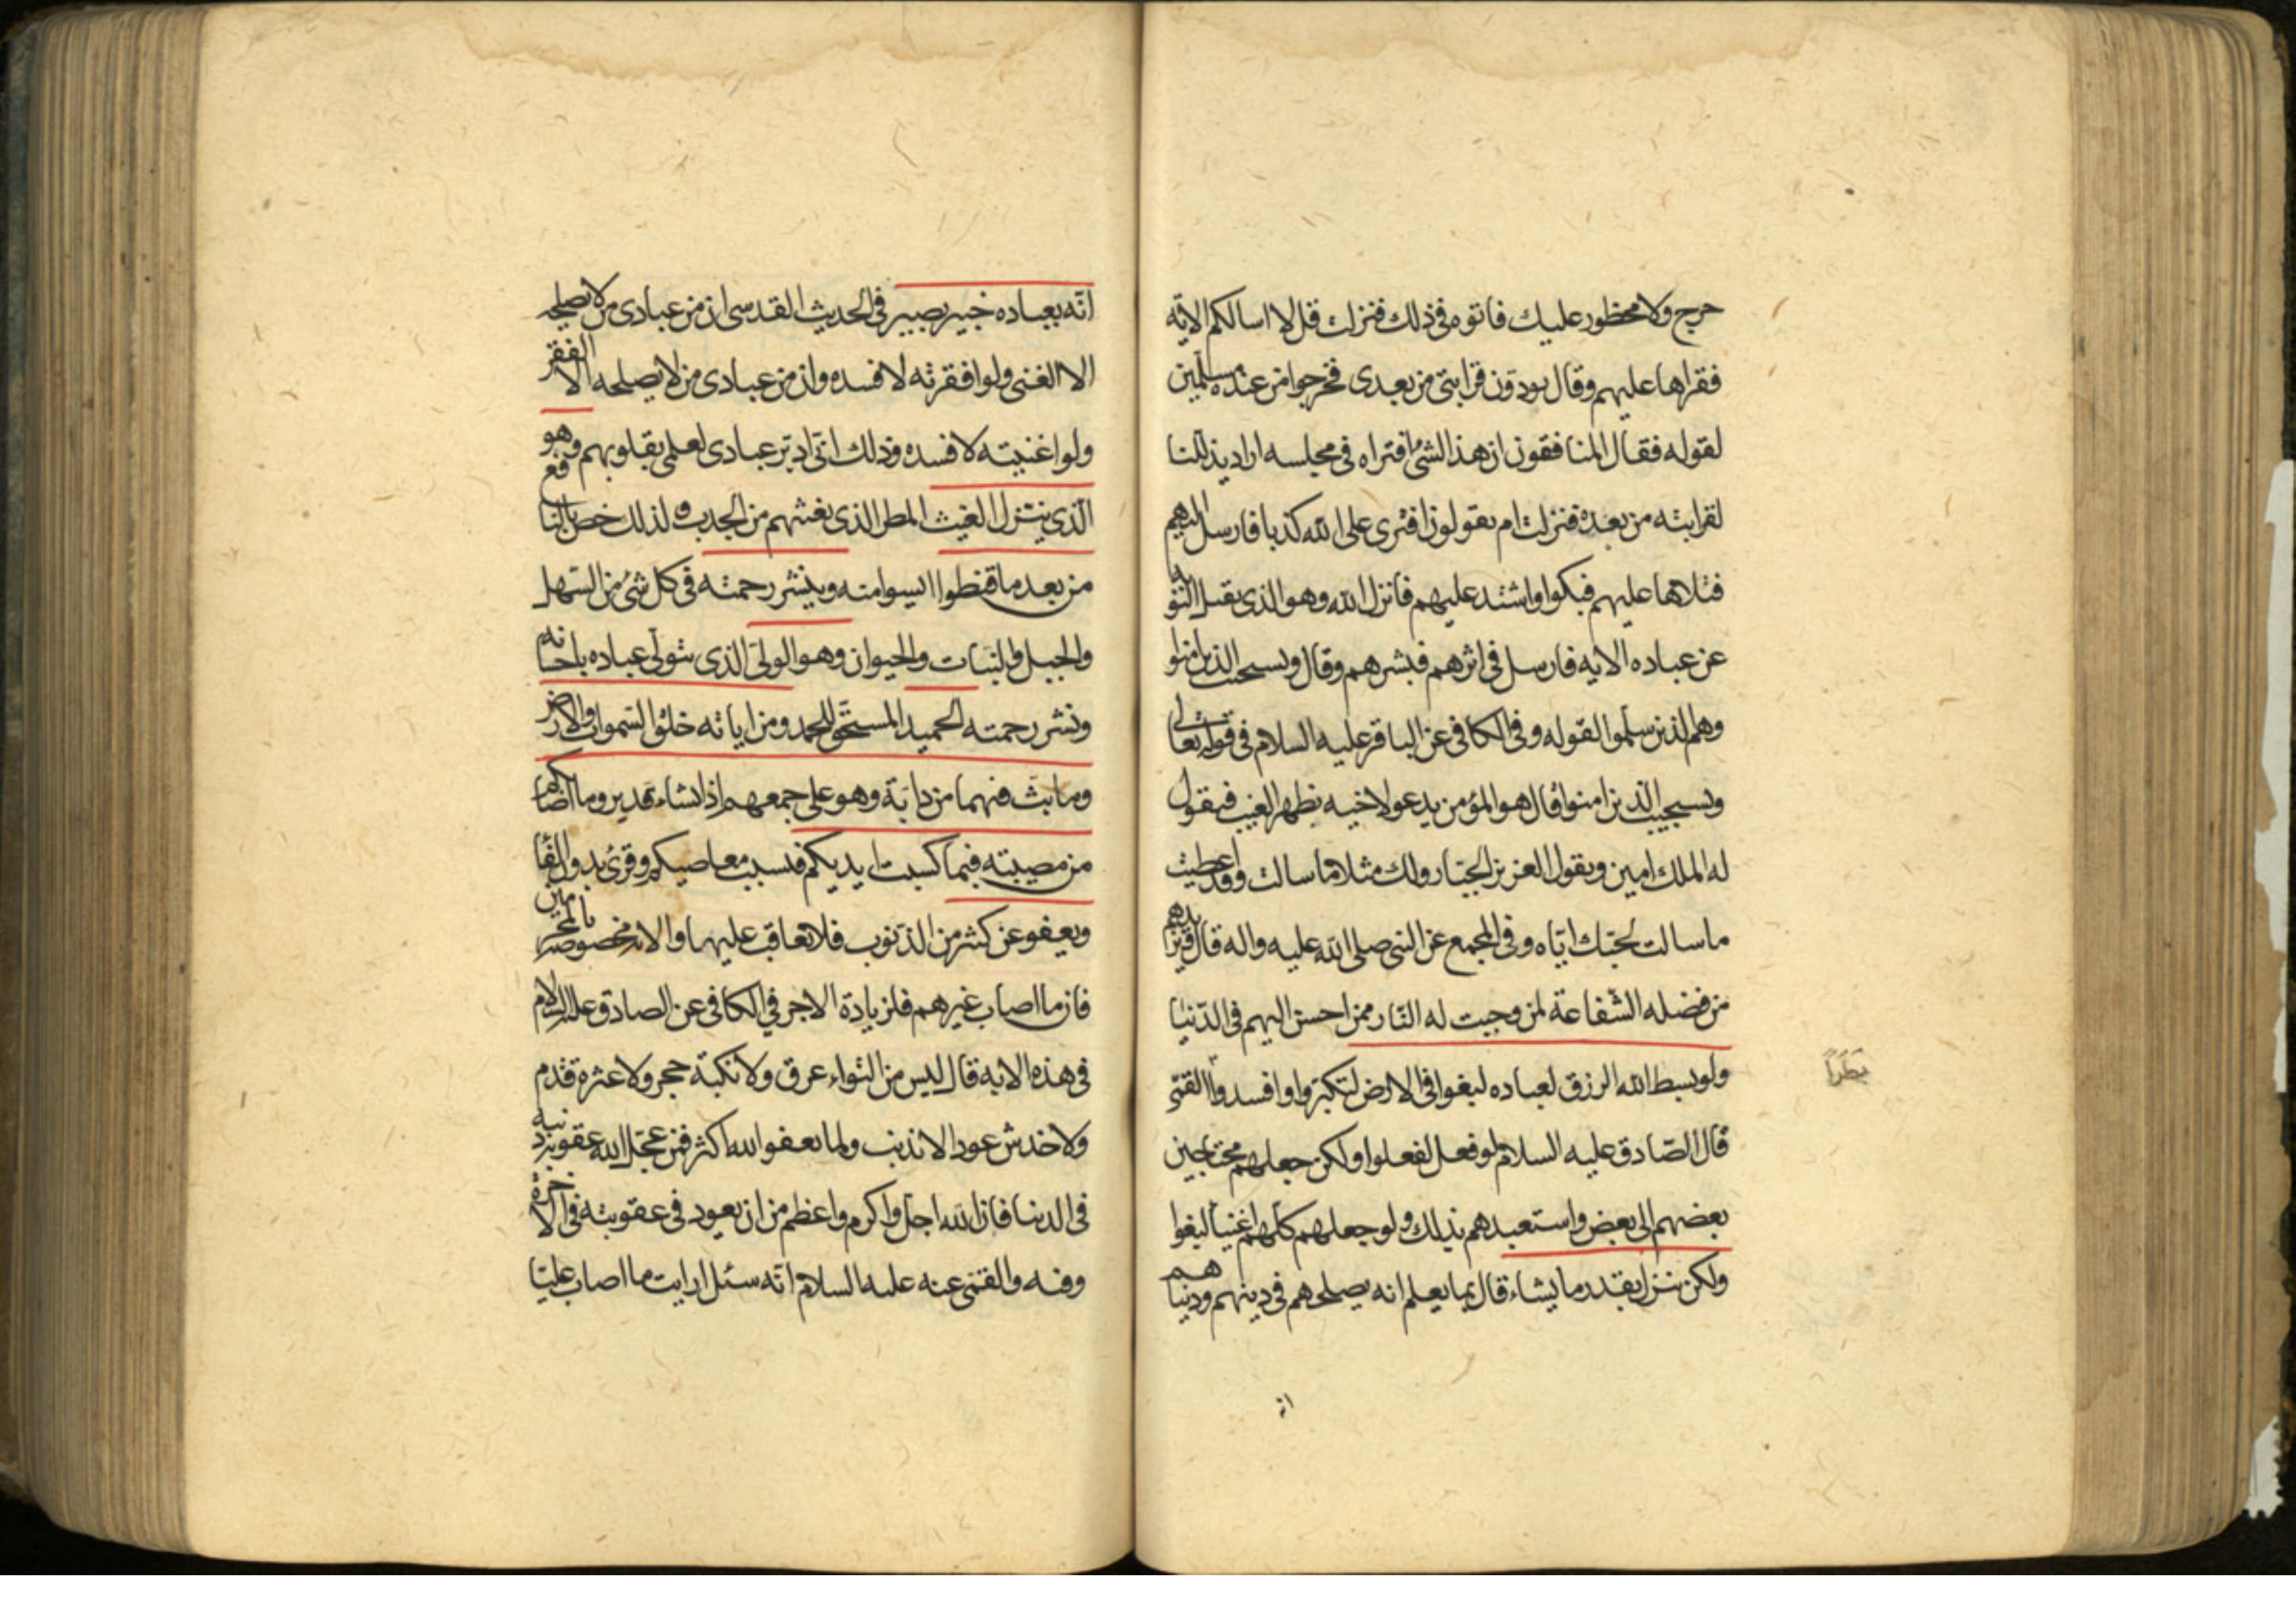 حرج ولا محظور عليك فاتوه في ذلك فنزلت قل لا اسالكم الاية
فقراها عليهم وقال يودّون قرابتي من بعدي فخرجوا من عنده مسلّمين
لقوله فقال المنافقون ان هذا الشئ افتراه في مجلسه اراد يذلّلنا
لقرابته من بعده فنزلت ام يقولون افترى على الله كذبا فارسل اليهم
فتلاها عليهم فبكوا واشتد عليهم فانزل الله وهو الذي يقبل التوبة
عن عباده الاية فارسل في اثرهم فبشرهم وقال ويستجيب الذين امنوا
وهم الذين سلّموا لقوله وفي الكافي عن الباقر عليه السلام في قوله تعالى
ويستجيب الذين امنوا قال هو المؤمن يدعو لاخيه بظهر الغيب فيقول
له الملك امين ويقول العزيز الجبّار ولك مثلا ما سالت وقد اعطيت
ما سالت لحبّك ايّاه وفي المجمع عن النبي صلى الله عليه واله قال ويزيدهم
من فضله الشّفاعة لمن وجبت له النّار ممن احسن اليهم في الدّنيا
ولو بسط الله الرزق لعباده لبغوا في الارض لتكبّروا وافسدوا القمّي
بَطَراً
قال الصّادق عليه السلام لو فعل لفعلوا ولكن جعلهم محتاجين
بعضهم الى بعض واستعبدهم بذلك ولو جعلهم كلّهم اغنياء لبغوا
ولكن ينزل بقدر ما يشاء قال بما يعلم انه يصلحهم في دينهم ودنياهم
انّه
انّه بعباده خبير بصير في الحديث القدسي ان من عبادي من لا يصلحه
الا الغنى ولو افقرته لافسده وان من عبادي من لا يصلحه الا الفقر
ولو اغنيته لافسده وذلك انّي ادبّر عبادي لعلمي بقلوبهم وهو
الّذي ينزل الغيث المطر الذي يغيثهم من الجدب ولذلك خص بالنافع
من بعد ما قنطوا ايسوا منه وينشر رحمته في كل شئ من السّهل
والجبل والنّبات والحيوان وهو الولىّ الذي يتولّى عباده باحسانه
ونشر رحمته الحميد المستحق للحمد ومن اياته خلق السّموات والارض
وما بثّ فيهما من دابّة وهو على جمعهم اذا يشاء قدير وما اصابكم
من مصيبته فبما كسبت ايديكم فبسبب معاصيكم وقرئ بدون الفاء
ويعفو عن كثير من الذّنوب فلا يعاقب عليها والاية مخصوصة بالمجرمين
فان ما اصاب غيرهم فلزيادة الاجر في الكافي عن الصادق عليه السلام
في هذه الاية قال ليس من التواء عرق ولا نكبة حجر ولا عثرة قدم
ولا خدش عود الا بذنب ولما يعفو الله اكثر فمن عجّل الله عقوبة ذنبه
في الدنيا فان الله اجلّ واكرم واعظم من ان يعود في عقوبته في الاخرة
وفيه والقمّي عنه عليه السلام انّه سئل ارايت ما اصاب عليّا